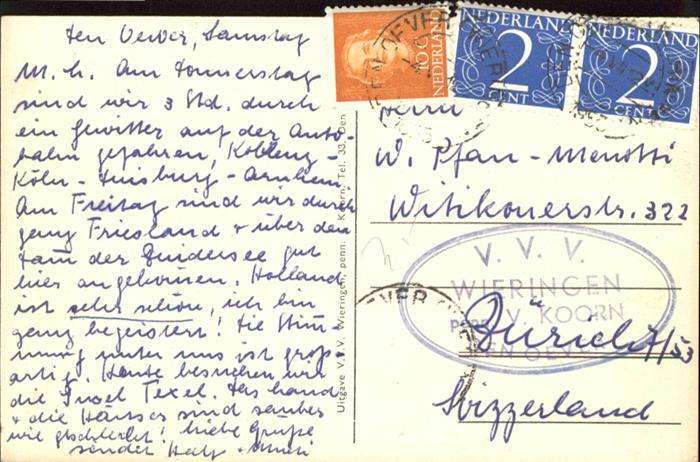 Den Oever, Samstag
M. h. Am Donnerstag
sind wir 3 Std. durch
ein Gewitter auf der Auto-
bahn gefahren, Koblenz-
Köln - Duisburg - Arnhem.
Am Freitag sind wir durch
ganz Friesland + über den
Damm der Zuidersee gut
hier angekommen. Holland
ist sehr schön, ich bin
ganz begeistert! Die Stim-
mung unter uns ist gross-
artig. Heute besuchen wir
die Insel Texel. Das Land
+ die Häuser sind sauber
wie geschleckt! Liebe Grüsse
sendet
Uitgave V.V.V. Wieringen, penn. Koorn, Tel. 33, Den
DEN OEVER
10 C
NEDERLAND
NEDERLAND
2
CENT
NEDERLAND
2
CENT
Herrn
W. Pfan - Menotti
Witikonerstr. 322
V. V. V.
WIERINGEN
V. KOORN
DEN OEVER
Zürich 7/53
Svizzerland